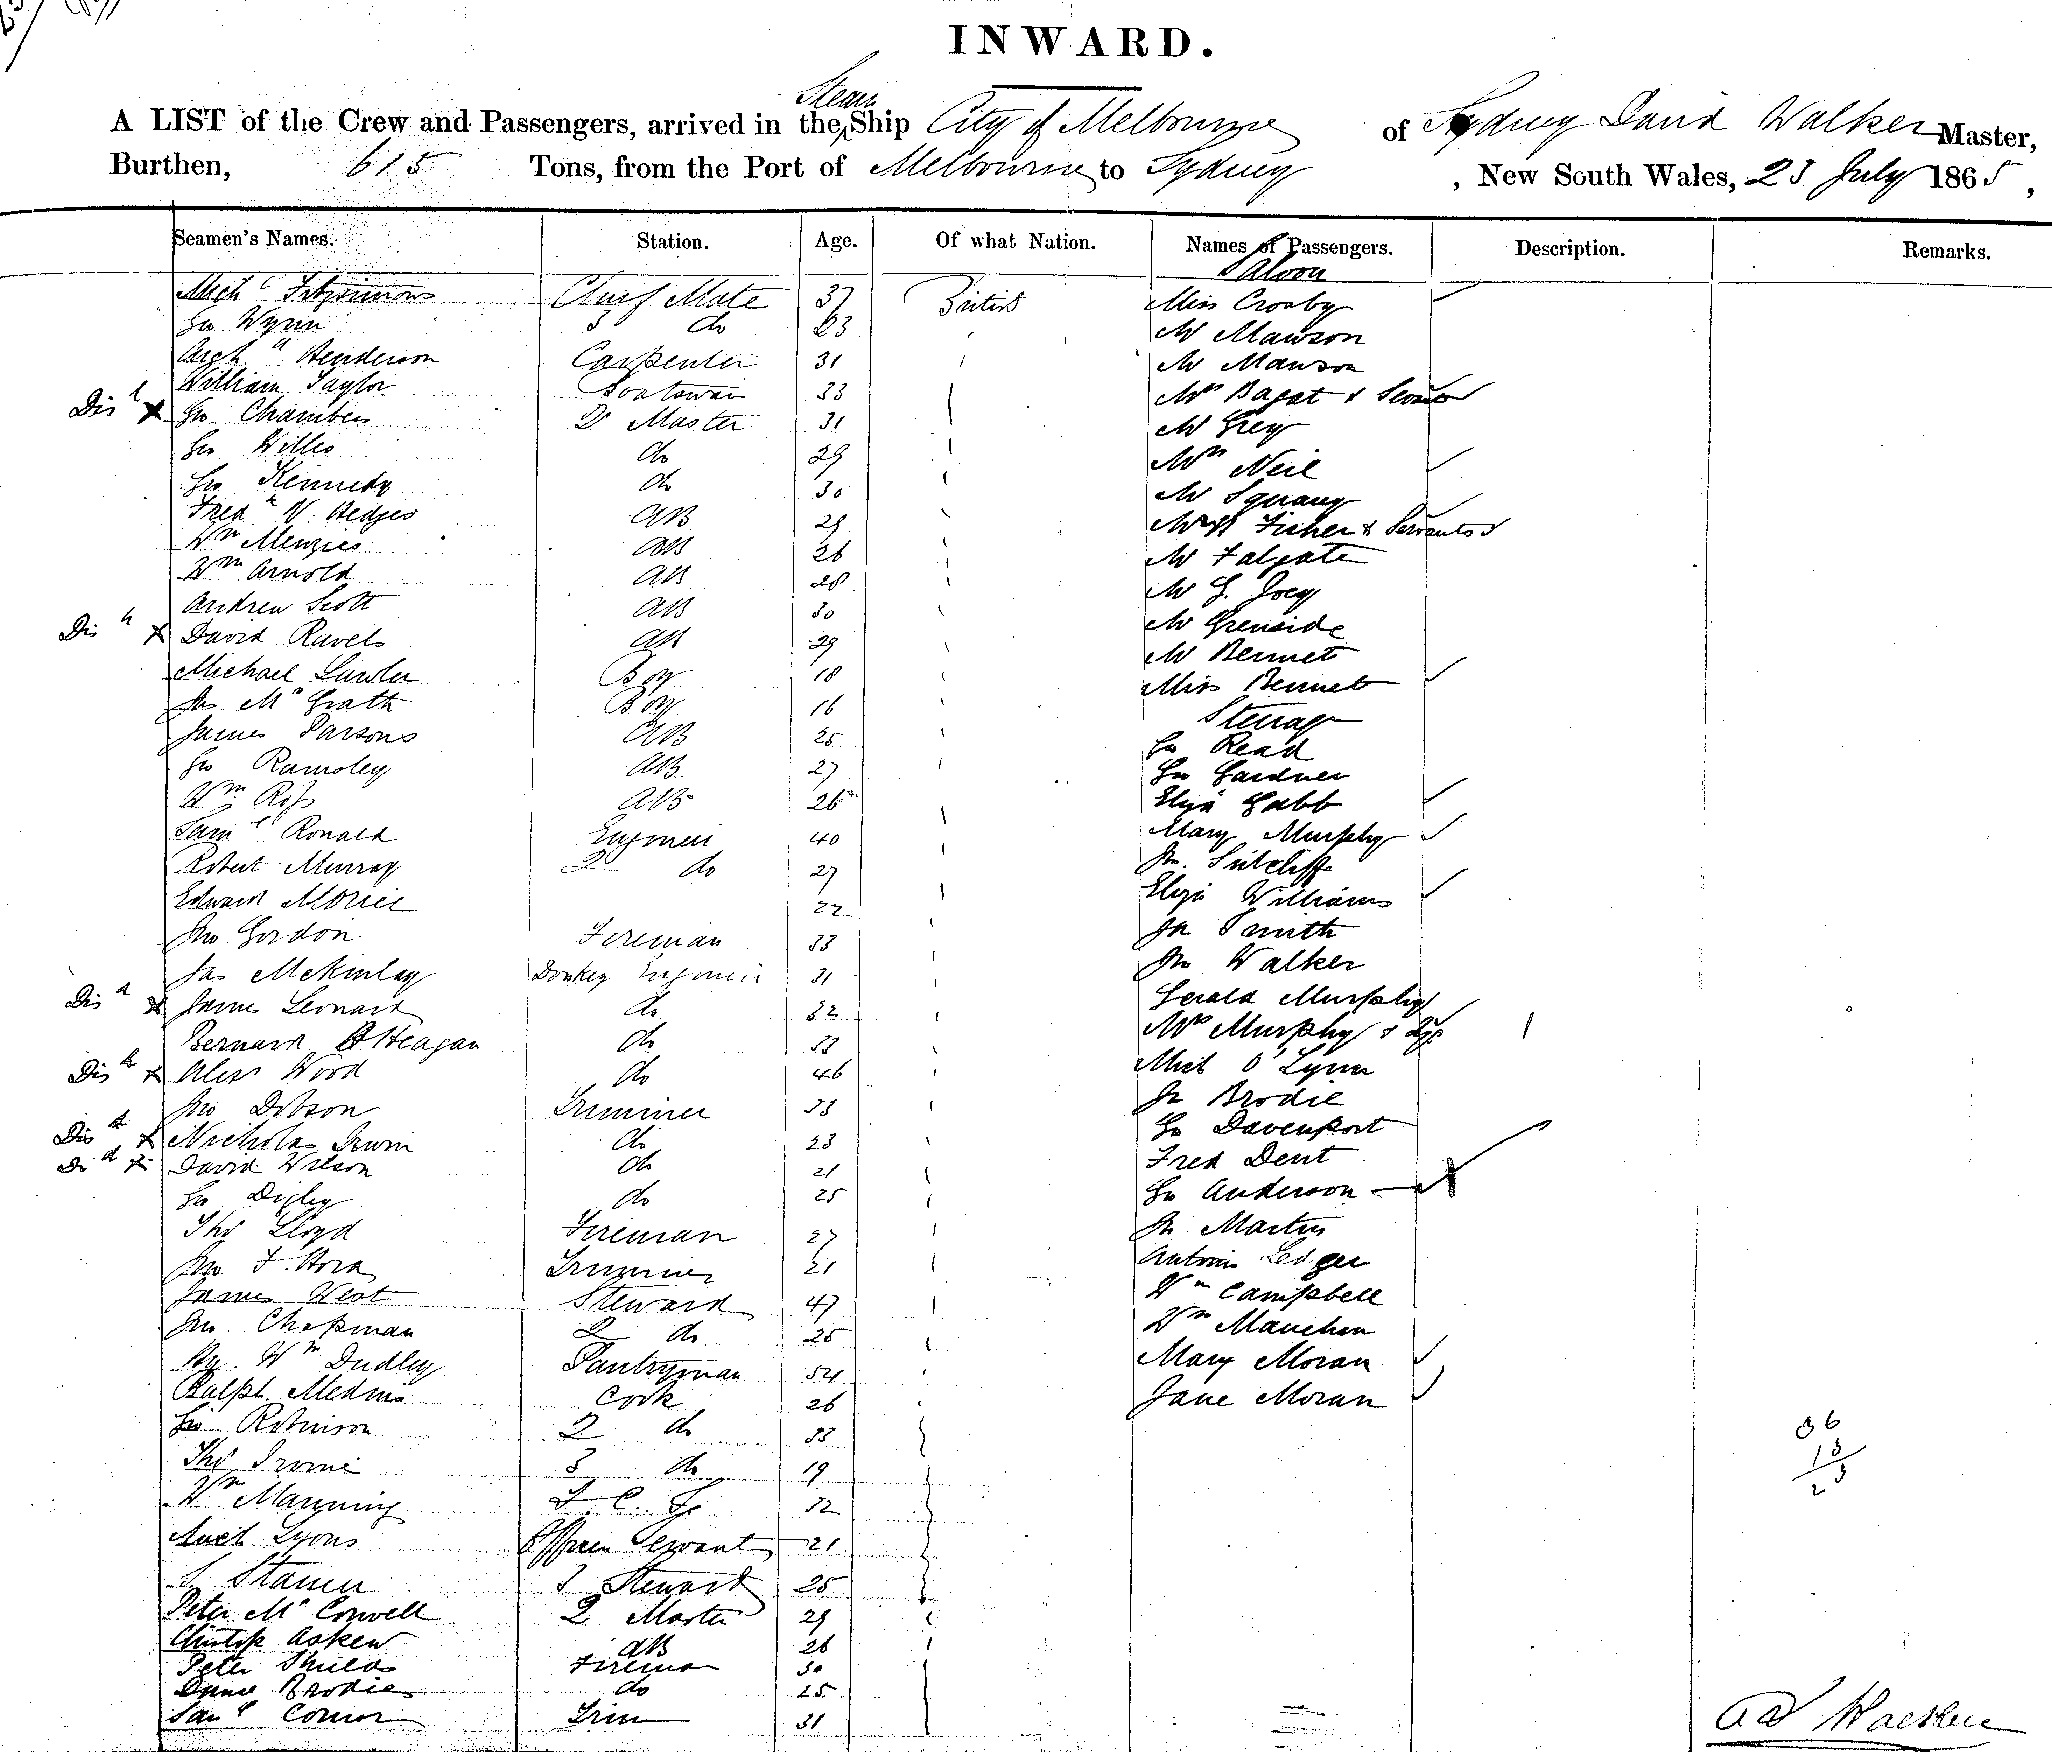 INWARD.
A LIST of the Crew and Passengers, arrived in the Steam Ship City of Melbourne of Sydney David Walker Master,
Burthen, 615 Tons, from the Port of Melbourne to Sydney, New South Wales, 23 July 1865,
Seamen's Names. Station. Age. Of what Nation. Names of Passengers. Description. Remarks.
Saloon
Mich Fitzsimons Chief Mate 37 British Miss Crosby
Jno Wynn 3 do 23 Mr Mawson
Arch Henderson Carpenter 31 Mr Manson
William Taylor Boatswain 33 Mrs Bagot &
Dis x Jno Chambers Q Master 31 Mr Grey
Jno Willis do 29 Mrs Neil
Jno Kennedy do 30 Mr
Fred W. Hedges AB 29 Fisher & Servants
Wm Menzies AB 26 Mr Falgate
Wm Arnold AB 28 Mr G.
Andrew Scott AB 30 Mr Grenside
Dis x David Ravels AB 29 Mr Bennet
Michael Lawler Boy 18 Miss Bennet
Jas McGrath Boy 16 Steerage
James Parsons AB 25 Jno Read
Jno Ramsley AB 27 Jno Gardner
Wm AB 26 Eliza Gabb
Saml Ronald Engineer 40 Mary Murphy
Robert Murray 2 do 27 Jn. Sutcliff
Edward Morris 22 Eliza Williams
Jno Gordon Fireman 33 Jn Smith
Jas McKinlay Donkey Engineer 31 Jno Walker
Dis x James Leonard do 32 Gerald Murphy
Bernard O'Heagan do 33 Mrs Murphy &
Dis x Alexr Wood do 46 Mich O'Lynn
Jno Dobson Trimmer 33 Jn Brodie
Dis x Nicholas Irwin do 23 Jno Davenport
Dis x David Wilson do 21 Fred Dent
Jno Digby do 25 Jno Anderson
Thos Lloyd Fireman 27 Jn Martin
Jno F. Trimmer 21 Antonio Ledger
James West Steward 47 Wm Campbell
Jno Chapman 2 do 25 Wm
Hy. Wm Dudley Pantryman 54 Mary Moran
Ralph Cook 26 Jane Moran
Jno Robinson 2 do 33
Thos 3 do 19
Wm 32
Lyons Servant 21
S 3 Steward 25
Peter McConnell Q Master 29
Christop Askew AB 26
Peter Shields Fireman 30
Brodie do 25
Saml Connor Trim 31
36
13
23
Walker